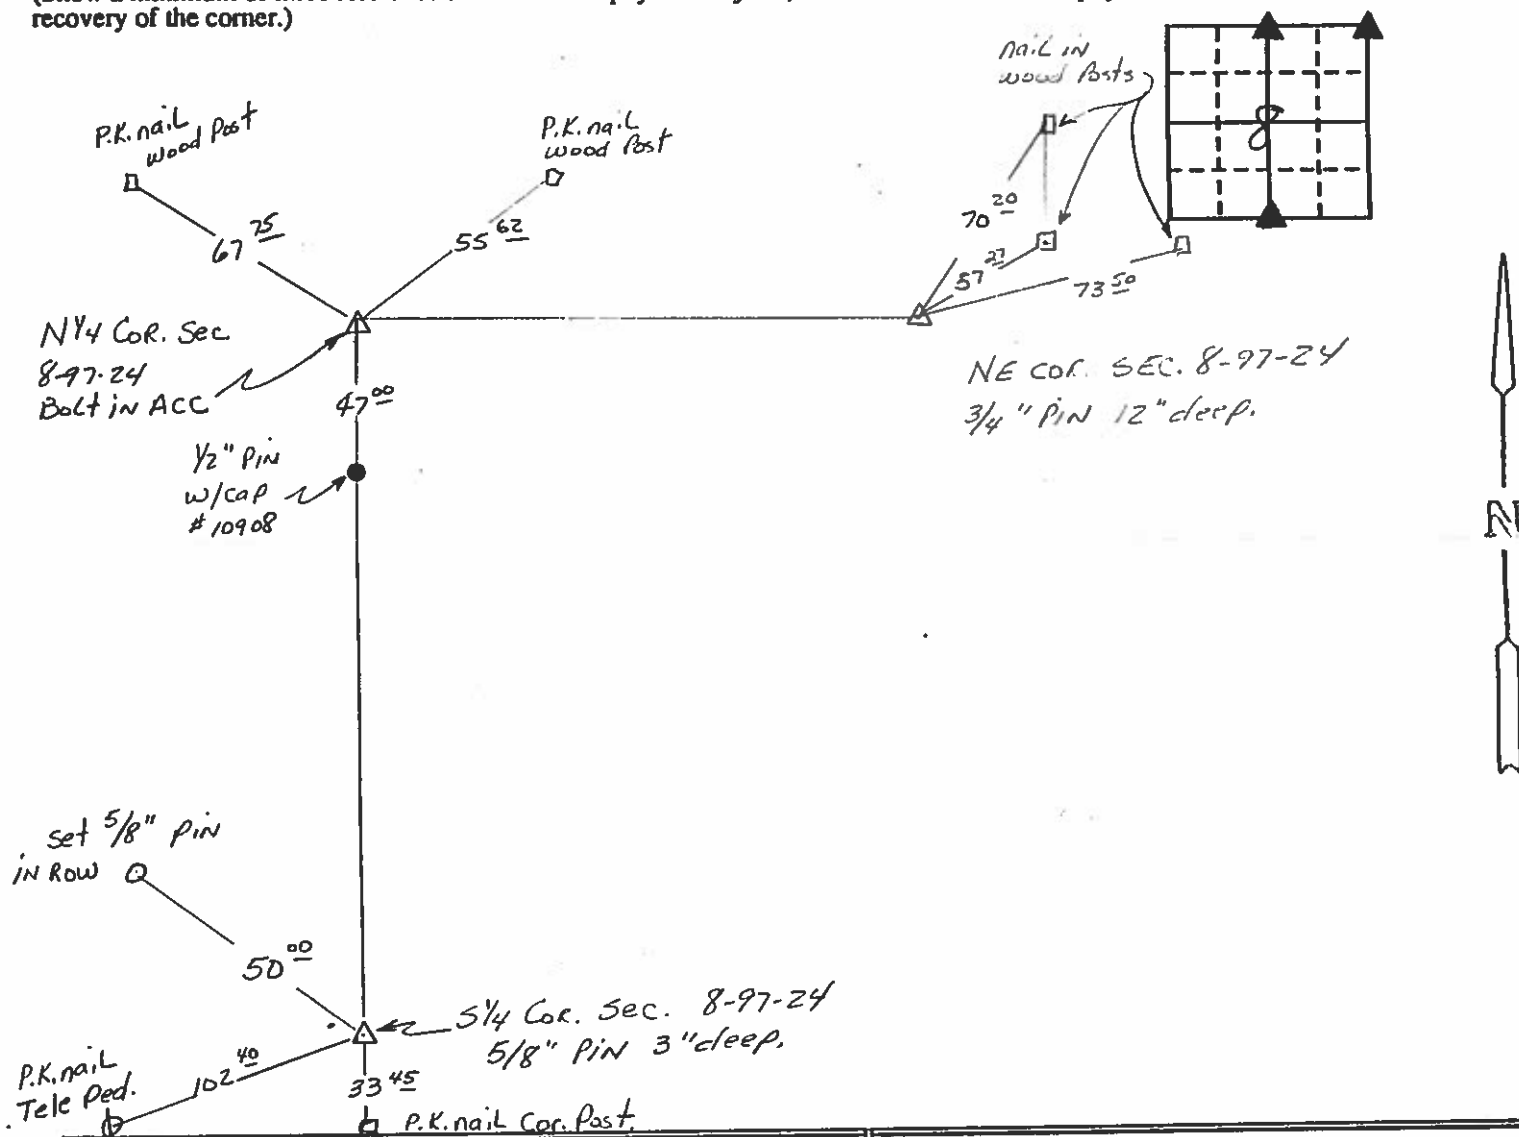 recovery of the corner.)
nail in
wood Posts
8
P.K. nail
wood Post
P.K. nail
wood Post
67 75
55 62
70 20
57 27
73 50
N 1/4 COR. Sec
8-97-24
Bolt in ACC
NE COR. SEC. 8-97-24
3/4" PIN 12" deep.
47 00
1/2" PIN
w/cap
#10908
N
set 5/8" PIN
in ROW
50 00
S 1/4 COR. Sec. 8-97-24
5/8" PIN 3" deep.
P.K. nail
Tele Ped.
102 40
33 45
P.K. nail Cor. Post.